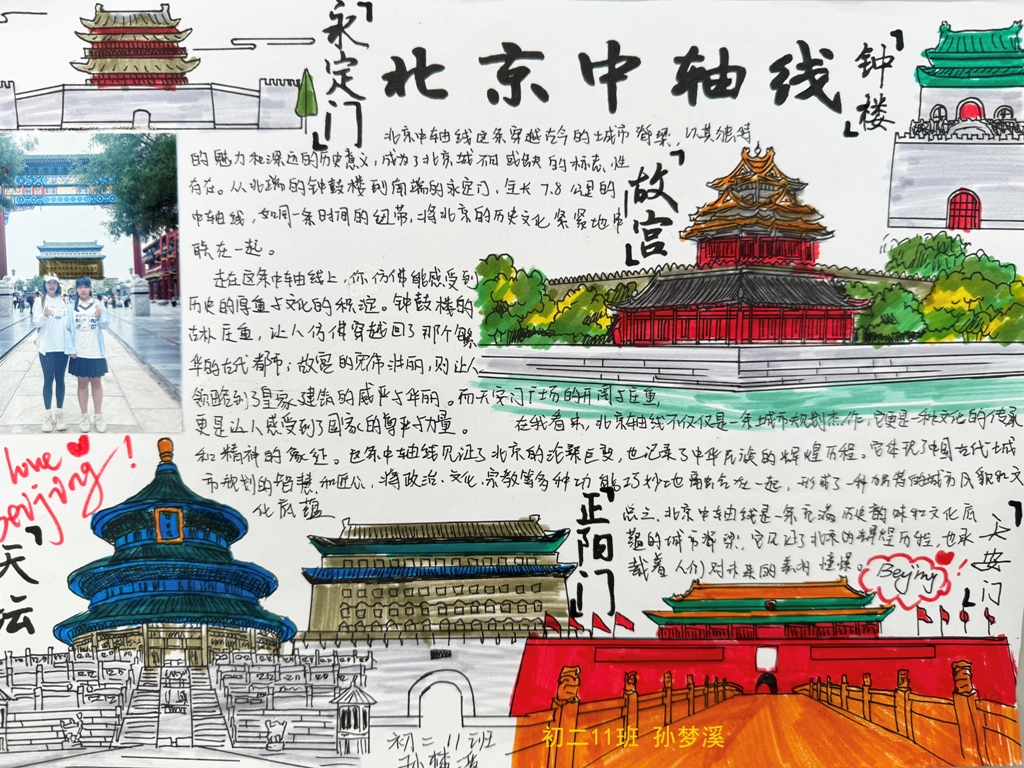 永定门
北京中轴线
钟楼
北京中轴线这条穿越古今的城市脊梁，以其独特
的魅力和深远的历史意义，成为了北京城不可或缺的标志性
存在。从北端的钟鼓楼到南端的永定门，全长7.8公里的
中轴线，如同一条时间的纽带，将北京的历史文化紧紧地串
联在一起。
故宫
走在这条中轴线上，你仿佛能感受到
历史的厚重与文化的积淀。钟鼓楼的
古朴庄重，让人仿佛穿越回了那个繁
华的古代都市；故宫的宏伟壮丽，则让人
领略到了皇家建筑的威严与华丽。而天安门广场的开阔与庄重，
更是让人感受到了国家的尊严与力量。
在我看来，北京中轴线不仅仅是一条城市规划杰作，它更是一种文化的传承
和精神的象征。这条中轴线见证了北京的沧桑巨变，也记录了中华民族的辉煌历程。它体现了中国古代城
市规划的智慧和匠心，将政治、文化、宗教等多种功能巧妙地融合在一起，形成了一种独特的城市风貌和文
化底蕴
总之，北京中轴线是一条充满历史韵味和文化底
蕴的城市脊梁，它见证了北京的辉煌历程，也承
载着人们对未来的美好憧憬。
love
beijing!
天坛
正阳门
天安门
Beijing
初二11班
孙梦溪
初二11班 孙梦溪